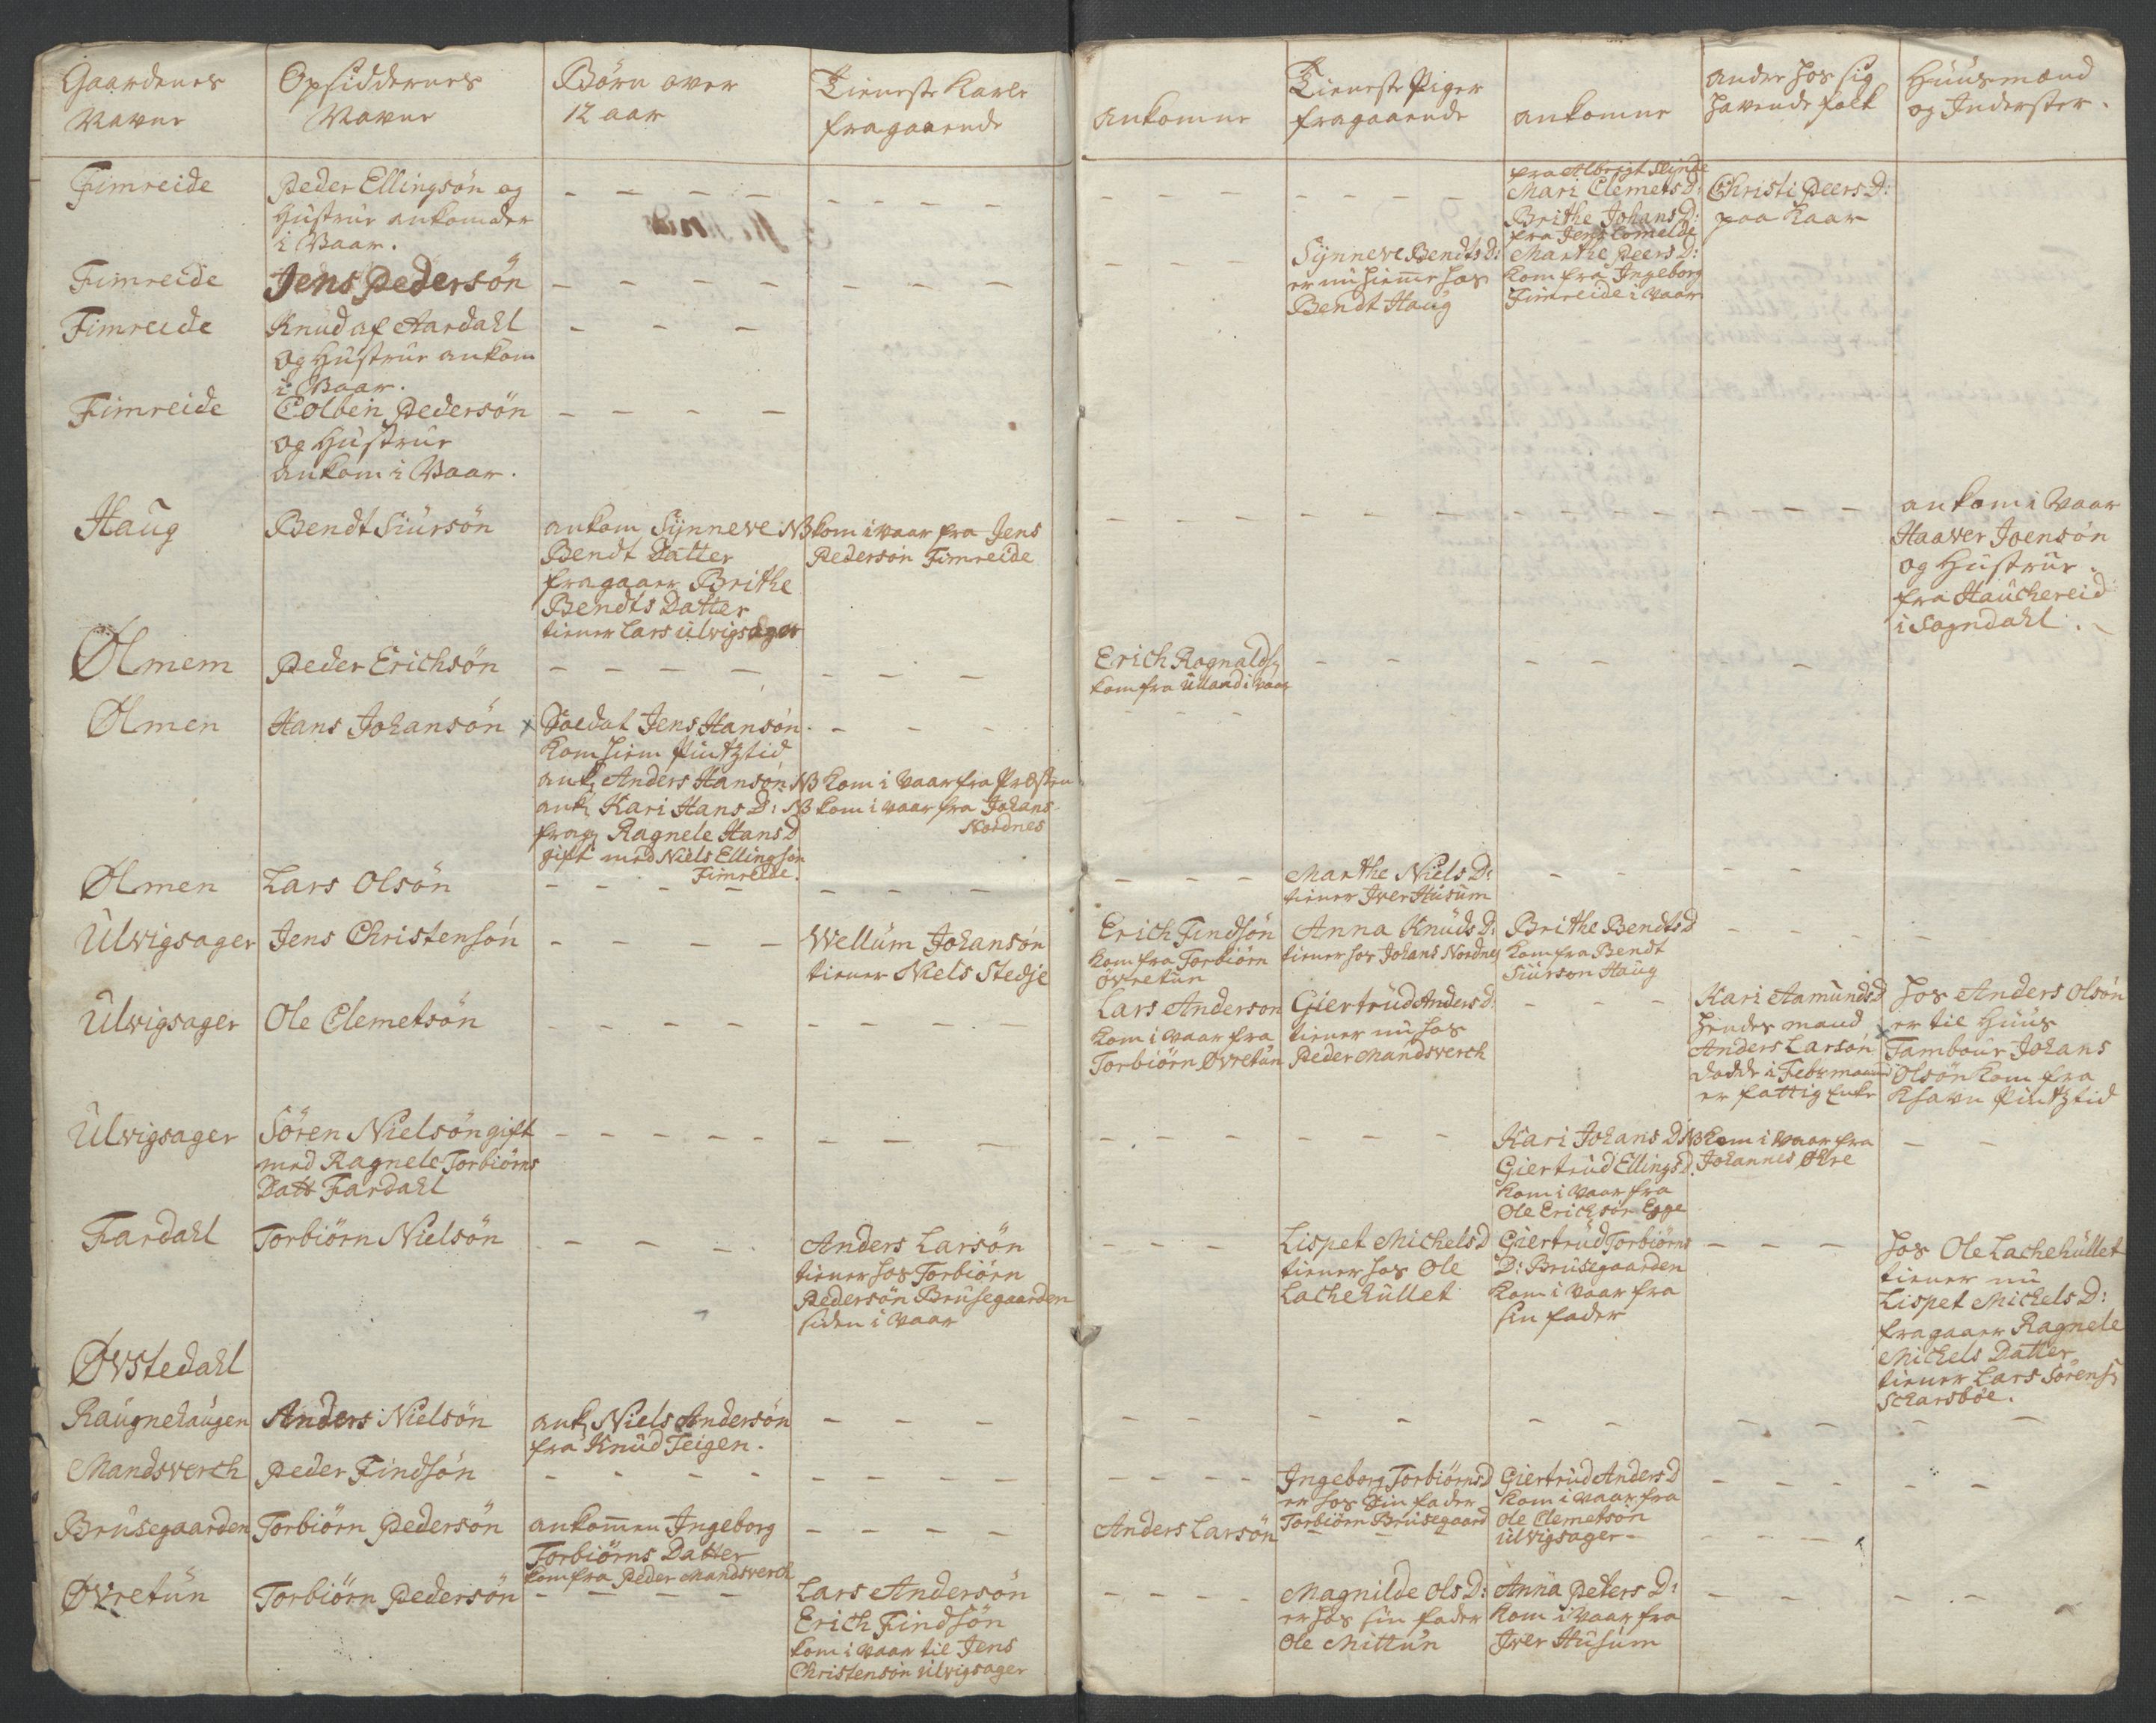 Gaardenes
Navne
Opsiddernes
Navne
Børn over
12 aar
Tieneste Karle
fragaaende
ankomne
Tieneste Piger
fragaaende
ankomne
ander hos sig
havende folk
Huusmænd
og Inderster.
Fimreide
Peder Ellingsön og
Hustrue ankom der
i Vaar.
fra Albrigt Slinde
Mari Clemets D:
Brithe Johans D:
fra Jens Comelde
Christi Peers D:
paa Kaar
Fimreide
Jens Pedersön
Synneve Bendts D:
er nu hieme hos
Bendt Haug
Marthe Peers D:
kom fra Ingeborg
Fimreide i vaar
Fimreide
Knud af Aardahl
og Hustrue ankom
i Vaar.
Fimreide
Colbein Pedersön
og Hustrue
ankom i Vaar.
Haug
Bendt Siursön
ankom Synneve NB kom i vaar fra Jens
Bendt Datter Pedersön Fimreide
fragaaer Brithe
Bendts Datter
tiener Lars Ulvigsager
ankom i Vaar
Haaver Joensön
og Hustrue
fra Hauchereid
i Sogndahl.
Ølmem
Peder Erichsön
Erich Ragnalds
kom fra Ulland i vaar
Ølmen
Hans Johansön
x Soldat Jens Hansön
kom hiem Pintztid
ank Anders Hansön NB kom i Vaar fra Præsten
ank Kari Hans D: NB kom i vaar fra Johans
Nordnes
frag Ragnele Hans D
gift med Niels Ellingsön
Fimreide.
Ølmen
Lars Olsön
Marthe Niels D:
tiener Iver Husum
Ulvigsager
Jens Christensön
Wellum Johansön
tiener Niels Stedje
Erich Findsön
kom fra Torbiörn
övretun
Anna Knuds D:
tiener hos Johans Nordnes
Brithe Bendts D
kom fra Bendt
Siurson Haug
Ulvigsager
Ole Clemetsön
Lars Anderson
kom i vaar fra
Torbiörn Øvretun
Giertrud Anders D:
tiener nu hos
Peder Mandsverch
Kari Aamunds D
hendes mand
Anders Larsön
dødde i Febr maaned
er fattig Enke
hos Anders Olsön
x er til Huus
Tambour Johans
Olsön kom fra
Khavn Pintztid
Ulvigsager
Sören Nielsön gift
med Ragnele Torbiörns
Datt Fardahl
Kari Johans D NB kom i vaar fra
Johannes Øhre
Giertrud Ellings D.
kom i vaar fra
Ole Erichsön Egge
Fardahl
Torbiörn Nielsön
Anders Larsön
tiener hos Torbiörn
Pedersön Brusegaarden
siden i Vaar
Lispet Michels D
tiener hos Ole
Lachehullet
Giertrud Torbiörns
D: Brusegaarden
kom i Vaar fra
sin fader
hos Ole Lachehullet
tiener nu
Lispet Michels D:
fragaaer Ragnele
Michels Datter
tiener Lars Sörens
Scharsböe.
Øvstedahl
Raugnehaugen
Anders Nielsön
ank Niels Andersön
fra Knud Teigen.
Mandsverch
Peder Findsön
Ingeborg Torbiörns D
er hos sin fader
Torbiörn Brusegaard
Giertrud Anders D
kom i vaar fra
Ole Clemetsön
Ulvigsager
Brusegaarden
Torbiörn Pedersön
ankommen Ingeborg
Torbiörns Datter
kom fra Peder Mandsverch
Anders Larsön
Øvretun
Torbiörn Pedersön
Lars Andersön
Erich Findsön
kom i vaar til Jens
Christensön Ulvigsager
Magnilde Ols D:
er hos sin fader
Ole Mittun
Anna Peters D:
kom i Vaar fra
Iver Husum